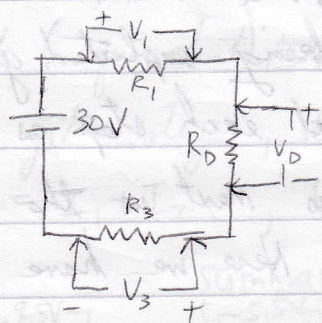 + V1
R1
30V
RD
+
VD
-
R3
- V3 +